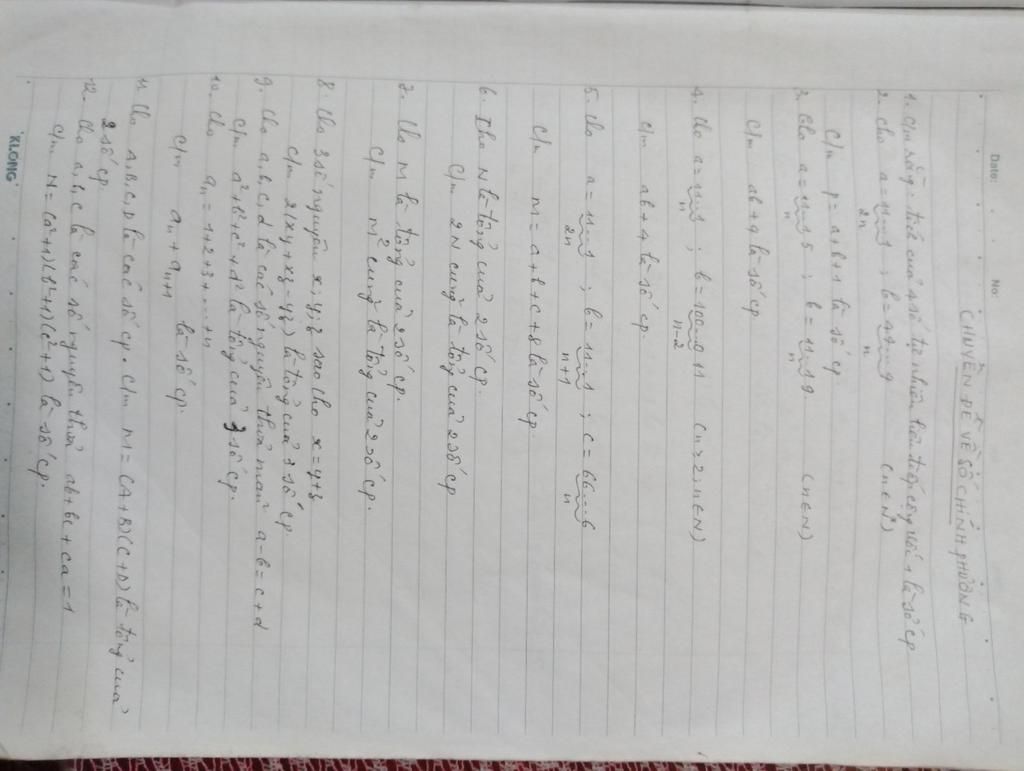 Date: No:
CHUYÊN ĐỀ VỀ SỐ CHÍNH PHƯƠNG
1. C/m rằng: tích của 4 số tự nhiên liên tiếp cộng với 1 là số cp
2. Cho a = 11...1 (2n) ; b = 44...4 (n) (n ∈ N*)
C/m p = a + b + 1 là số cp
3. Cho a = 11...1 5 (n) ; b = 11...1 9 (n) (n ∈ N)
C/m ab + 4 là số cp
4. Cho a = 11...1 (n) ; b = 100...0 11 (n-2) (n ≥ 2, n ∈ N)
C/m ab + 4 là số cp.
5. Cho a = 11...1 (2n) ; b = 11...1 (n+1) ; c = 66...6 (n)
C/m m = a + b + c + 8 là số cp.
6. Cho N là tổng của 2 số cp.
C/m 2N cũng là tổng của 2 số cp
7. Cho M là tổng của 2 số cp.
C/m M² cũng là tổng của 2 số cp.
8. Cho 3 số nguyên x, y, z sao cho x = y + z
C/m 2(xy + xz - yz) là tổng của 3 số cp.
9. Cho a, b, c, d là các số nguyên thỏa mãn a - b = c + d
C/m a² + b² + c² + d² là tổng của 3 số cp.
10. Cho aₙ = 1 + 2 + 3 + ... + n
C/m aₙ + aₙ₊₁ là số cp.
11. Cho A, B, C, D là các số cp. C/m M = (A + B)(C + D) là tổng của
2 số cp.
12. Cho a, b, c là các số nguyên thỏa ab + bc + ca = 1
C/m N = (a² + 1)(b² + 1)(c² + 1) là số cp.
KLONG